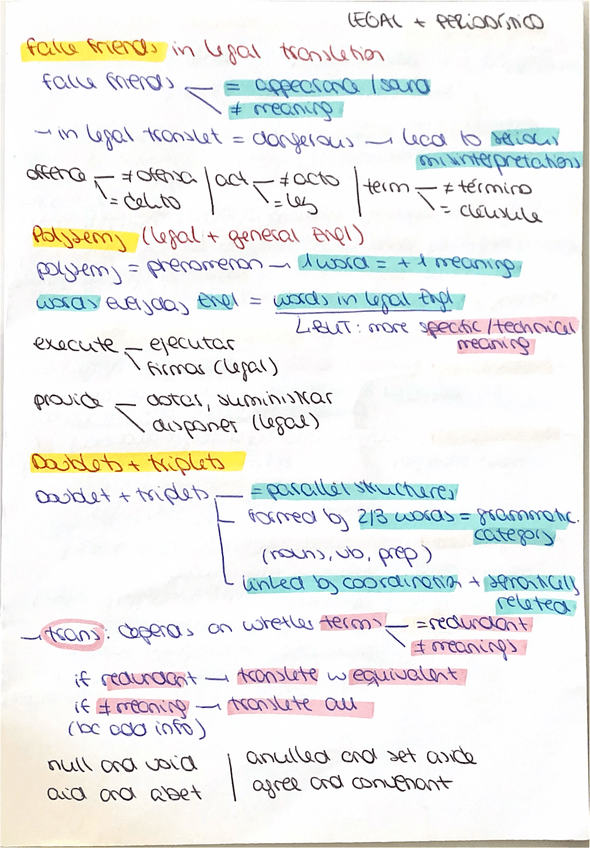 LEGAL + PERIODÍSTICO
false friends in legal translation
false friends = appearance / sound
≠ meaning
→ in legal translat = dangerous → lead to serious
misinterpretations
offence ≠ ofensa | act ≠ acto | term ≠ término
= delito = ley = cláusula
Polysemy (legal + general Engl)
polysemy = phenomenon → 1 word = + 1 meaning
words everyday Engl = words in legal Engl
↳ BUT: more specific / technical
meaning
execute ejecutar
firmar (legal)
provide dotar, suministrar
disponer (legal)
Doublets + triplets
Doublet + triplets = parallel structures
formed by 2/3 words = grammatic.
category
(nouns, vb, prep)
linked by coordination + semantically
related
→ trans: depends on whether terms = redundant
≠ meanings
if redundant → translate w equivalent
if ≠ meaning → translate all
(bc add info)
null and void | anulled and set aside
aid and abet | agree and convenant